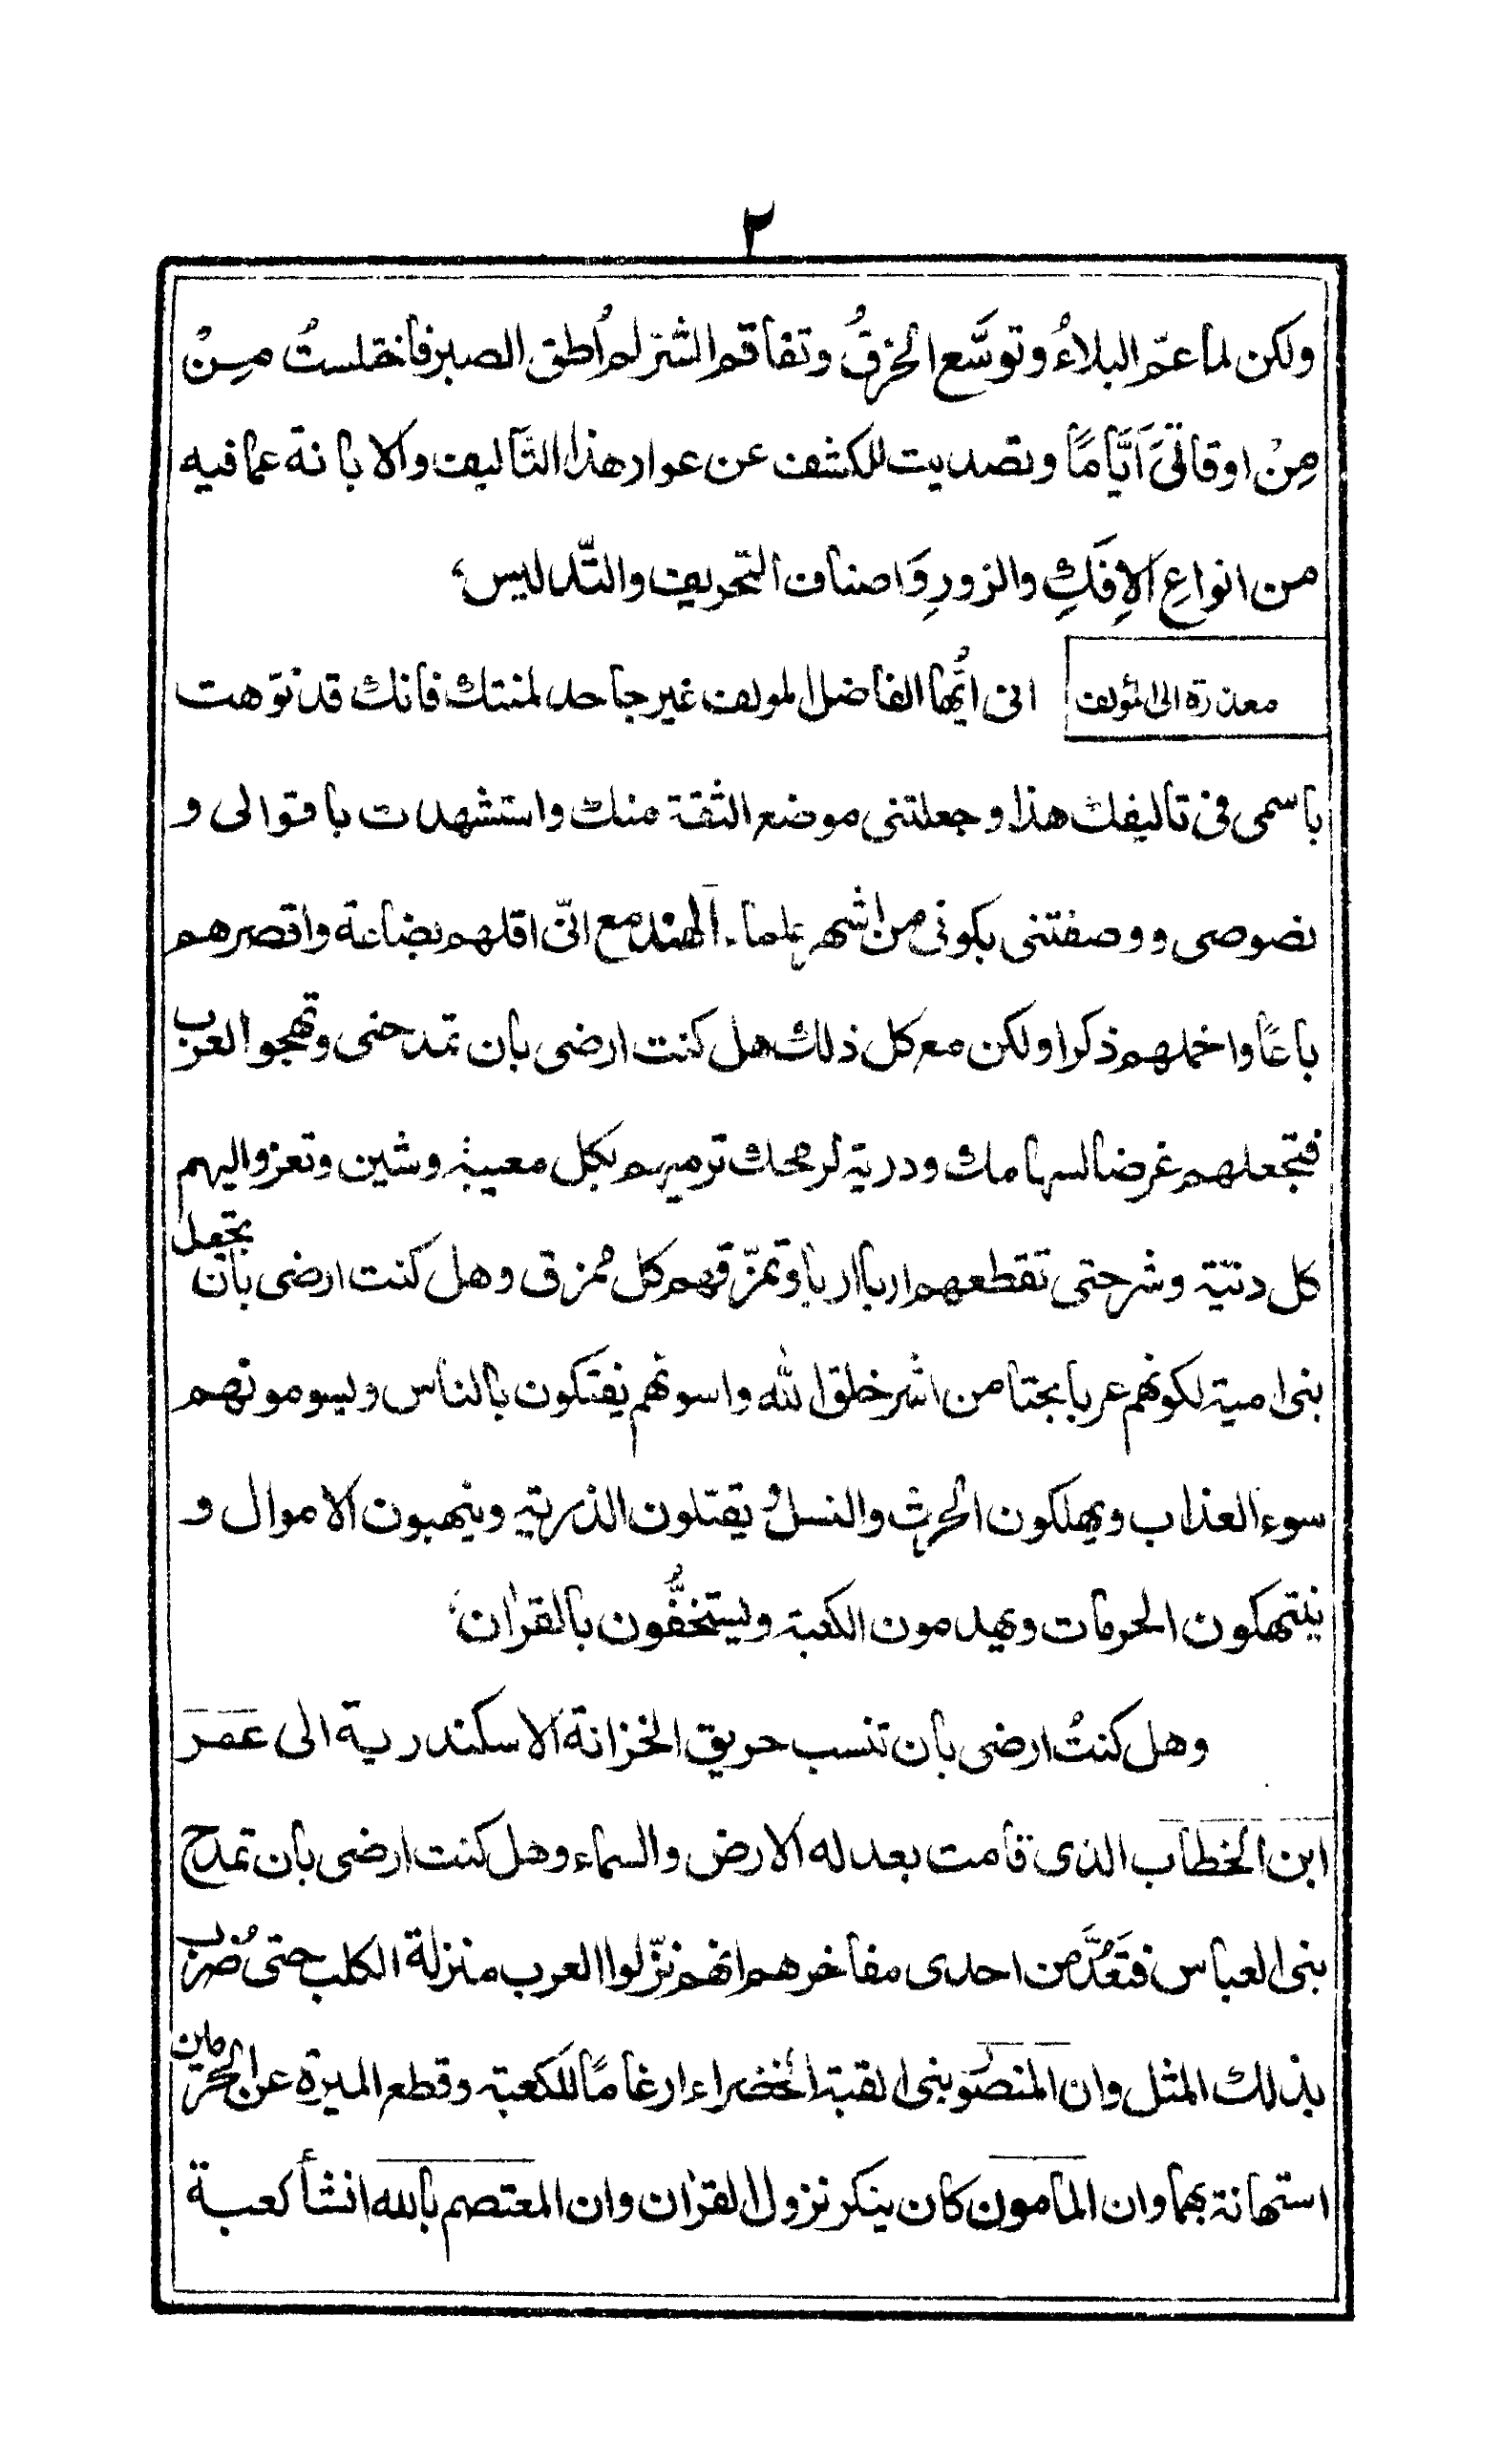 ٢
ولكن لما عمّ البلاءُ وتوسَّع الخرقُ وتفاقم الشر لم اُطق الصبر فاختلستُ مِنْ
مِنْ اوقاتىَ اَيَّامًا وتصديت للكشف عن عوار هذا التَاليف والابانة عما فيه
من انواعِ الاِفَكِ والزورِ وَاصناف التحريف والتّدليس،
معذرة الى المؤلف
انى ايُّها الفاضل المولف غير جاحد لمنتك فانك قد نوّهت
باسمى فى تاليفك هذا وجعلتنى موضع الثقة منك واستشهدت باقوالى و
نصوصى ووصفتنى بكونى من اشهر علماء الهند مع انّى اقلهم بضاعة واقصرهم
باعًا واخملهم ذكرا ولكن مع كل ذلك هل كنت ارضى بان تمدحنى وتهجو العرب
فتجعلهم غرضا لسهامك ودرية لرمحك ترميهم بكل معيبة وشين وتعزوا اليهم
كل دنيّة وشر حتى تقطعهم اربا اربا وتمزّقهم كل مُمزق وهل كنت ارضى بان تجعل
بنى امية لكونهم عربا بحتا من اشر خلق الله واسوئهم يفتكون بالناس ويسومونهم
سوء العذاب ويهلكون الحرث والنسل ويقتلون الذرية وينهبون الاموال و
ينتهكون الحرمات ويهدمون الكعبة ويستخفُّون بالقرٰان،
وهل كنتُ ارضى بان تنسب حريق الخزانة الاسكندرية الى عَمَرَ
ابن الخطاب الذى قامت بعدله الارض والسماء وهل كنت ارضى بان تمدح
بنى العباس فتَعُدَّ من احدى مفاخرهم انهم نزّلوا العرب منزلة الكلب حتى ضُرب
بذلك المثل وان المنصور بنى القبة الخضراء ارغامًا للكعبة وقطع الميرة عن الحرمين
استهانة بهما وان المامون كان ينكر نزول القرٰان وان المعتصم بالله انشأ كعبة